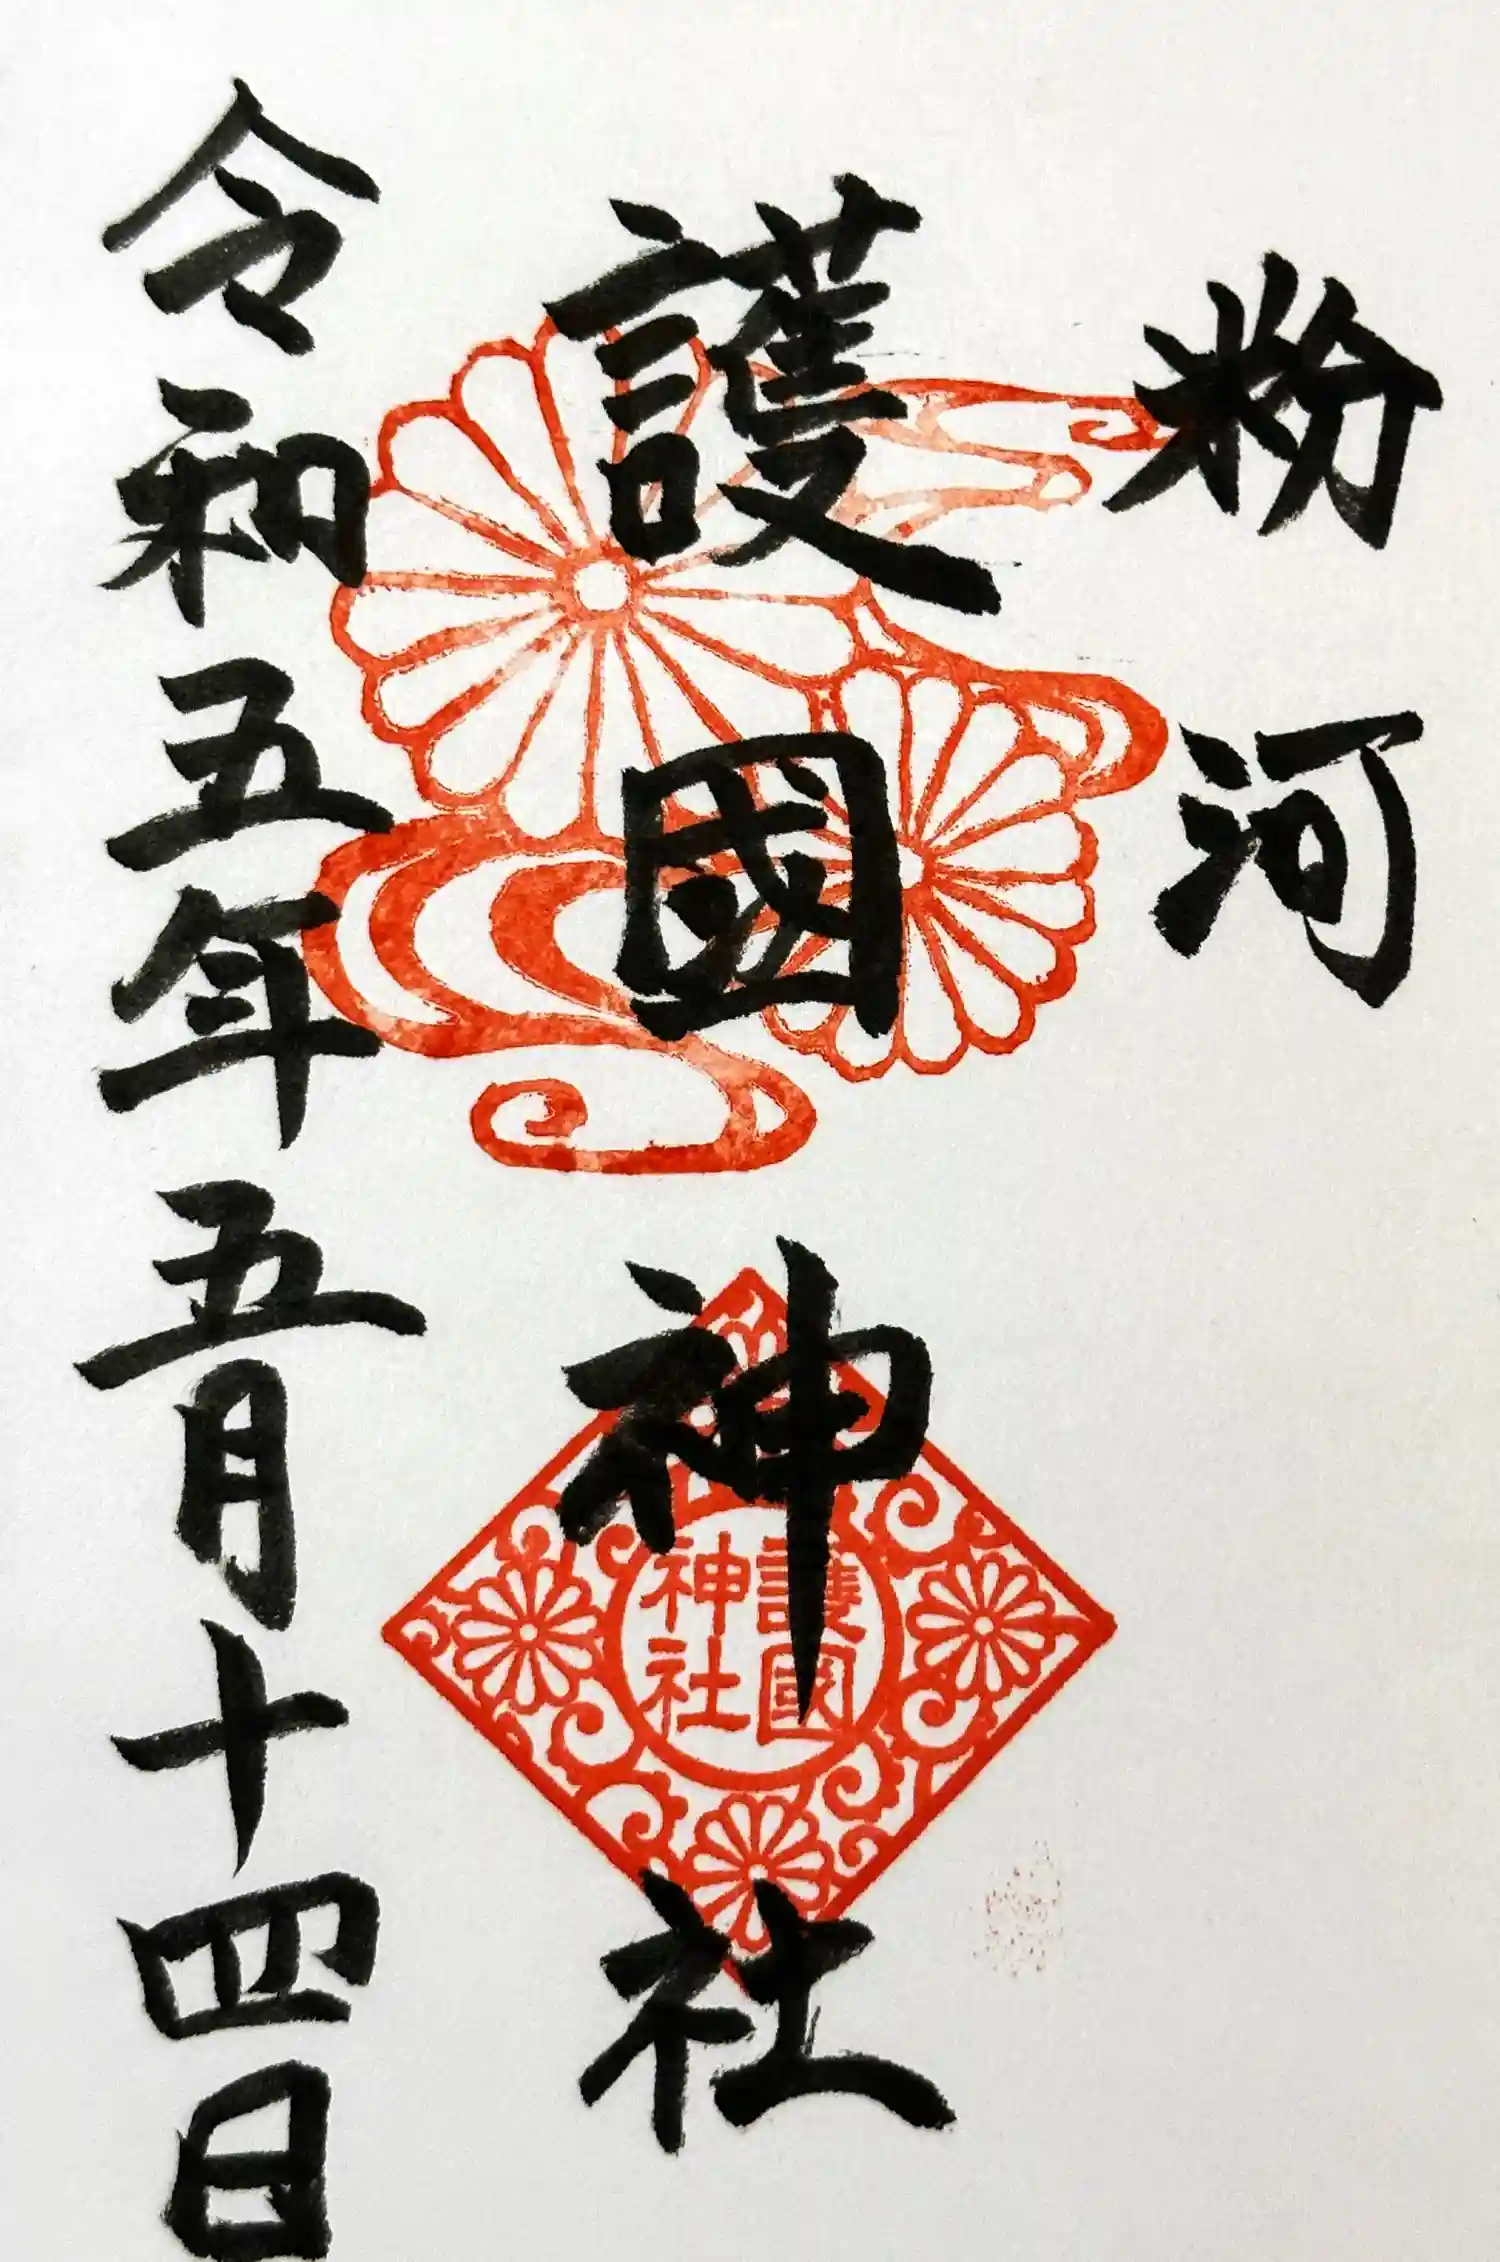 粉河
護國神社
護國
神社
令和五年五月十四日